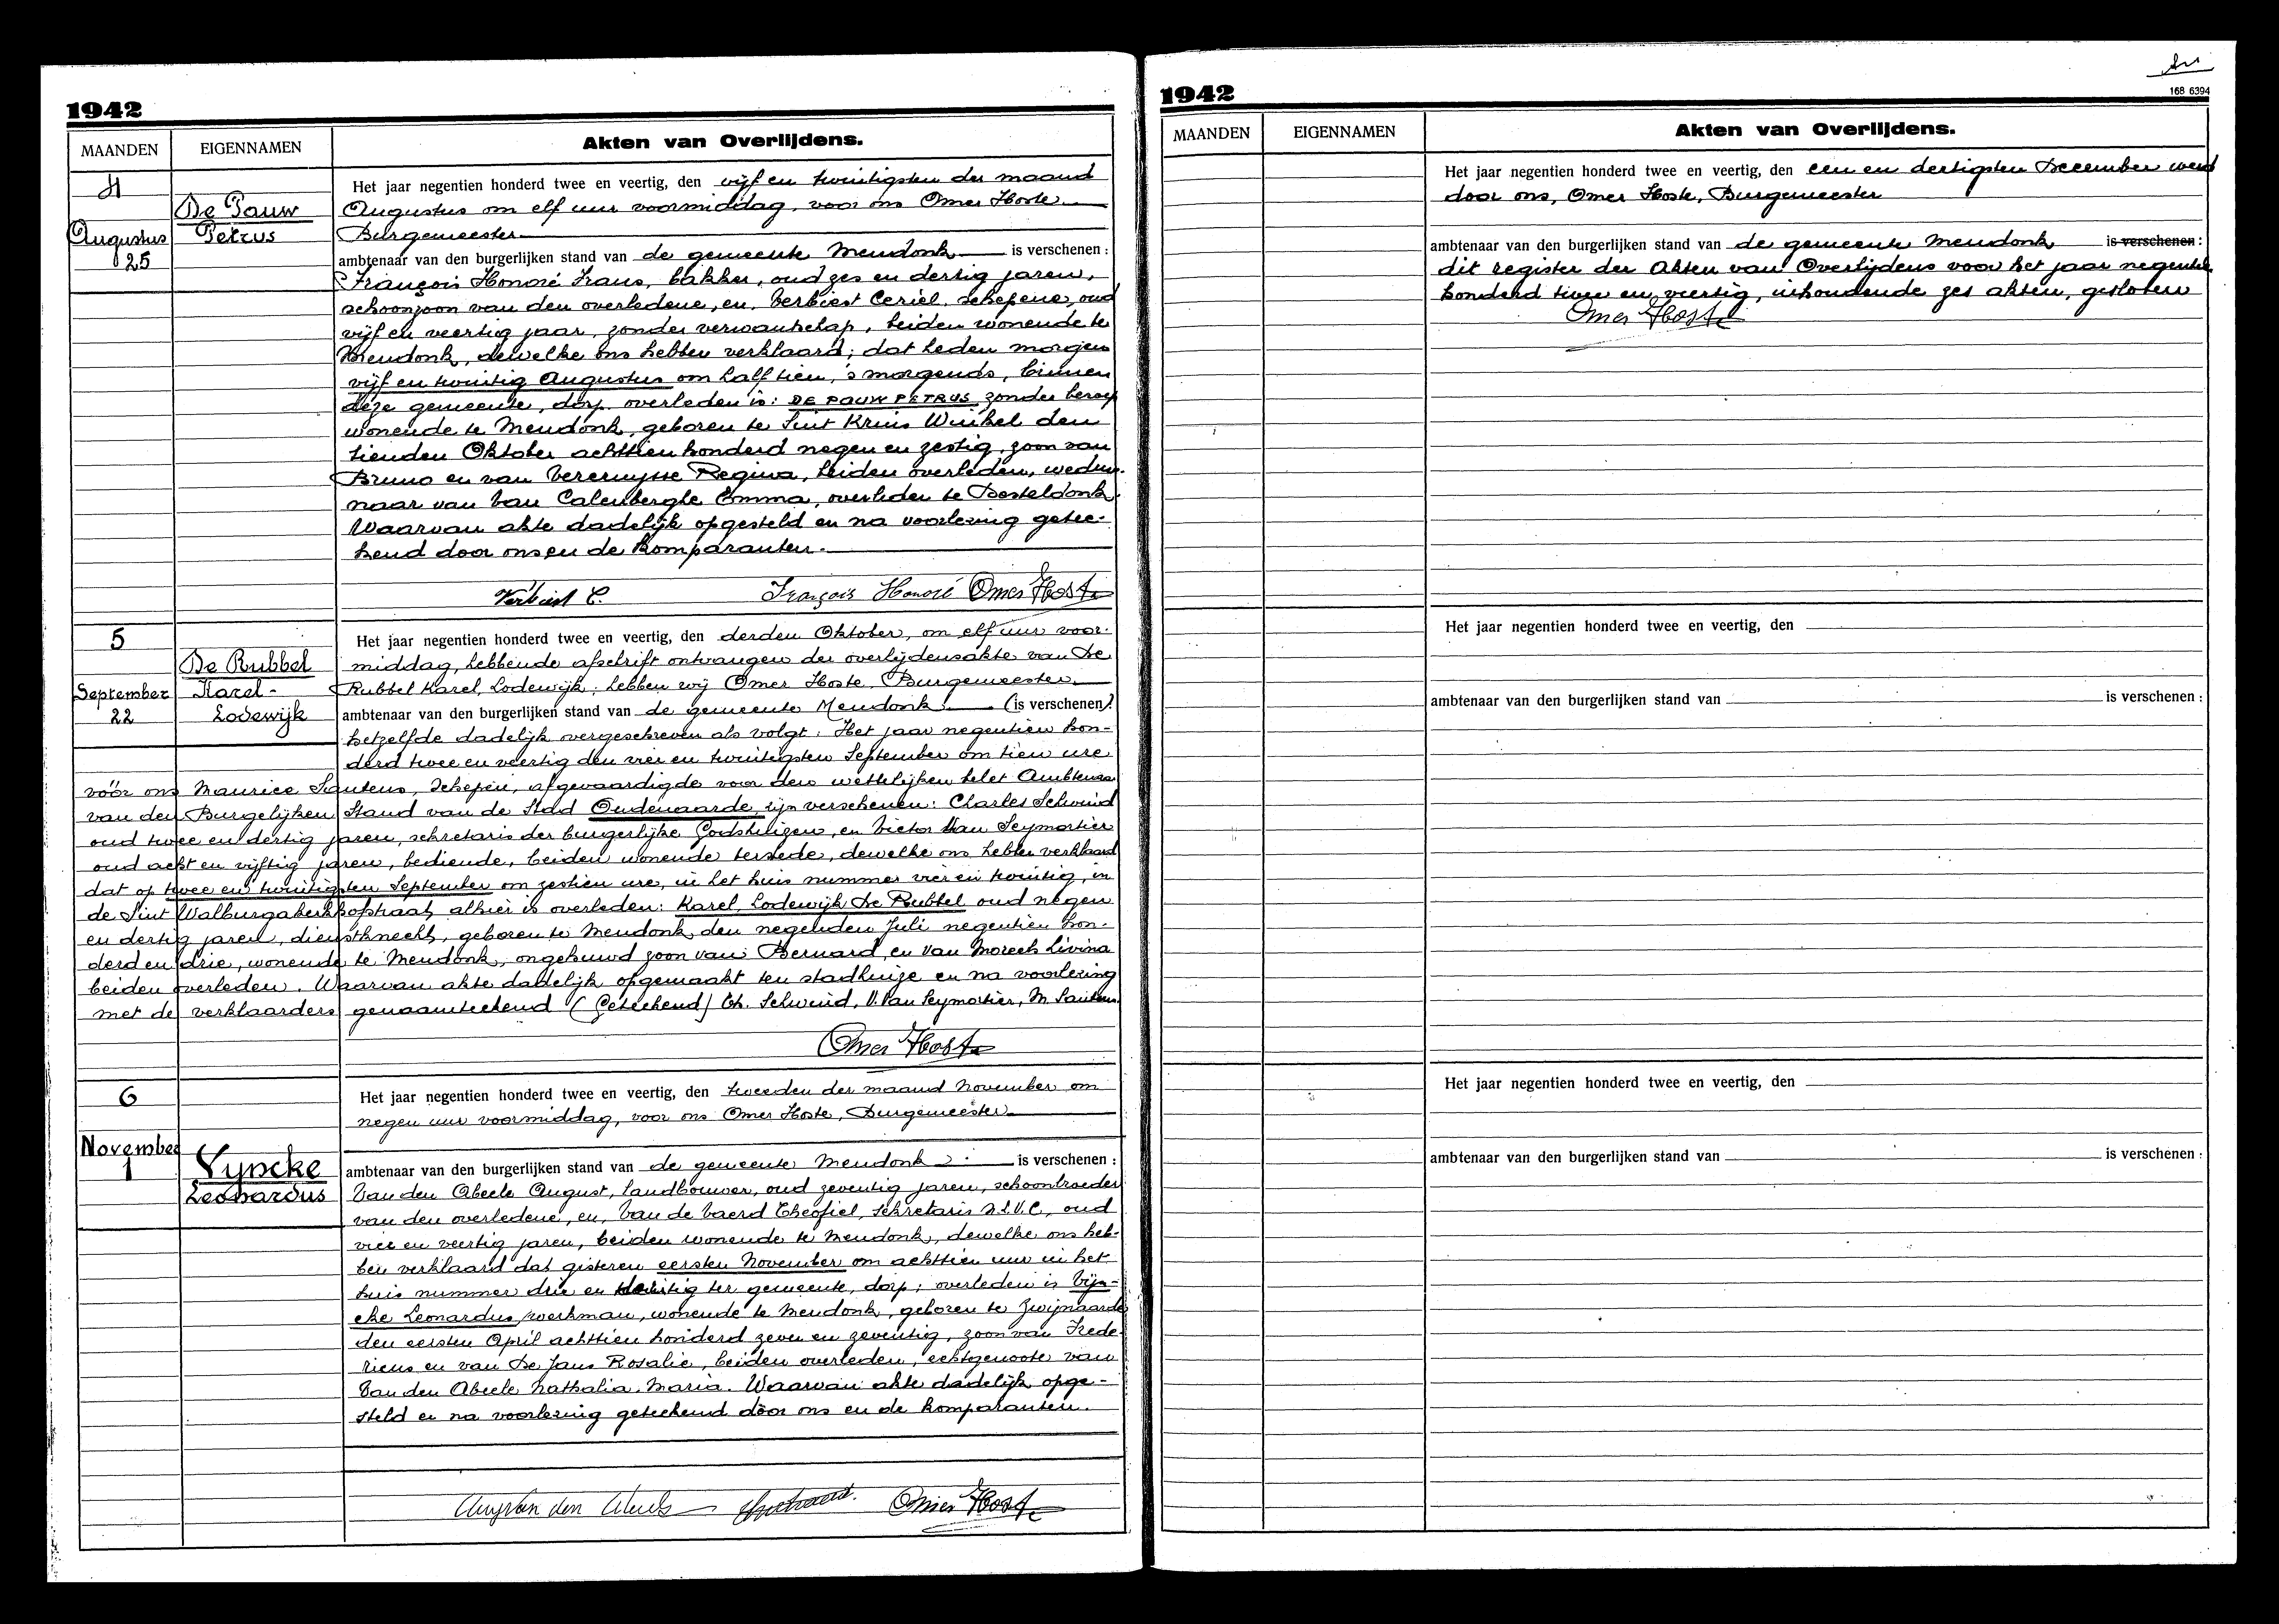 1942
MAANDEN EIGENNAMEN Akten van Overlijdens.
4
De Pauw
Petrus
Augustus
25
Het jaar negentien honderd twee en veertig, den vijf en twintigsten der maand
Augustus om elf uur voormiddag, voor ons Omer Hoste
Burgemeester
ambtenaar van den burgerlijken stand van de gemeente Mendonk is verschenen :
François Honoré Frans, bakker, oud zes en dertig jaren,
schoonzoon van den overledene, en, Verbiest Ceriel, schepene, oud
vijf en veertig jaar, zonder verwantschap, beiden wonende te
Mendonk, dewelke ons hebben verklaard; dat heden morgen
vijf en twintig Augustus om half tien, 's morgends, binnen
deze gemeente, dorp overleden is: DE PAUW PETRUS zonder beroep
wonende te Mendonk, geboren te Sint Kruis Winkel den
tienden Oktober achttien honderd negen en zestig, zoon van
Bruno en van Vereruysse Regina, beiden overleden, weduw-
naar van Van Calenberghe Emma, overleden te Desteldonk.
Waarvan akte dadelijk opgesteld en na voorlezing getee-
kend door ons en de komparanten.
Verbiest C. François Honoré Omer Hoste
5
De Rubbel
Karel-
Lodewijk
September
22
Het jaar negentien honderd twee en veertig, den derden Oktober, om elf uur voor-
middag, hebbende afschrift ontvangen der overlijdensakte van De
Rubbel Karel, Lodewijk; hebben wij Omer Hoste, Burgemeester
ambtenaar van den burgerlijken stand van de gemeente Mendonk (is verschenen)
hetzelfde dadelijk overgeschreven als volgt: Het jaar negentien hon-
derd twee en veertig den vier en twintigsten September om tien ure
vóór ons Maurice Santens, Schepen, afgevaardigde voor den wettelijken belet Ambtenaar
van den Burgelijken Stand van de Stad Oudenaarde zijn verschenen: Charles Schwind
oud twee en dertig jaren, sekretaris der burgerlijke Godshuizen, en Victor Van Seymortier
oud acht en vijftig jaren, bediende, beiden wonende terstede, dewelke ons hebben verklaard
dat op twee en twintigsten September om zestien ure, in het huis nummer vier en twintig, in
de Sint Walburgakerkhofstraat, alhier is overleden: Karel, Lodewijk De Rubbel oud negen
en dertig jaren, dienstknecht, geboren te Mendonk den negenden Juli negentien hon-
derd en drie, wonende te Mendonk, ongehuwd zoon van Bernard, en Van Moreels Livina
beiden overleden. Waarvan akte dadelijk opgemaakt ten stadhuize en na voorlezing
met de verklaarders genaamteekend (Geteekend) Ch. Schwind, V. Van Seymortier, M Santens
Omer Hoste
6
November
1
Vyncke
Leonardus
Het jaar negentien honderd twee en veertig, den tweeden der maand November om
negen uur voormiddag, voor ons Omer Hoste, Burgemeester
ambtenaar van den burgerlijken stand van de gemeente Mendonk is verschenen :
Van den Abeele August, landbouwer, oud zeventig jaren, schoonbroeder
van den overledene, en, Van de Vaerd Theofiel, sekretaris N.L.V.C., oud
vier en veertig jaren, beiden wonende te Mendonk, dewelke ons heb-
ben verklaard dat gisteren eersten November om achttien uur in het
huis nummer drie en twintig ter gemeente, dorp; overleden is Vyn-
cke Leonardus, werkman, wonende te Mendonk, geboren te Zwijnaarde
den eersten April achttien honderd zeven en zeventig, zoon van Frede-
ricus en van De Jans Rosalie, beiden overleden, echtgenoote van
Van den Abeele Nathalia Maria. Waarvan akte dadelijk opge-
steld en na voorlezing geteekend door ons en de komparanten.
Aug Van den Abeele Omer Hoste
1942
168 6394
MAANDEN EIGENNAMEN Akten van Overlijdens.
Het jaar negentien honderd twee en veertig, den een en dertigsten December werd
door ons, Omer Hoste, Burgemeester
ambtenaar van den burgerlijken stand van de gemeente Mendonk is verschenen :
dit register der Akten van Overlijdens voor het jaar negentien
honderd twee en veertig, inhoudende zes akten, gesloten
Omer Hoste
Het jaar negentien honderd twee en veertig, den
ambtenaar van den burgerlijken stand van is verschenen :
Het jaar negentien honderd twee en veertig, den
ambtenaar van den burgerlijken stand van is verschenen :